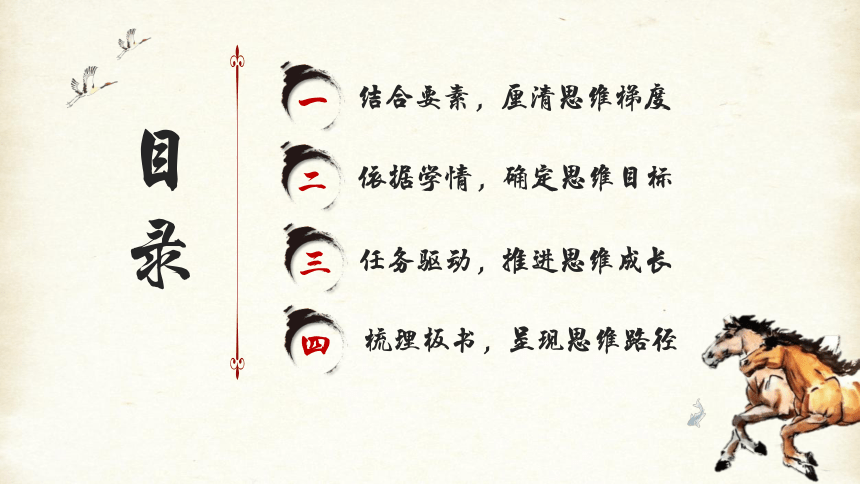 目录
一 结合要素，厘清思维梯度
二 依据学情，确定思维目标
三 任务驱动，推进思维成长
四 梳理板书，呈现思维路径